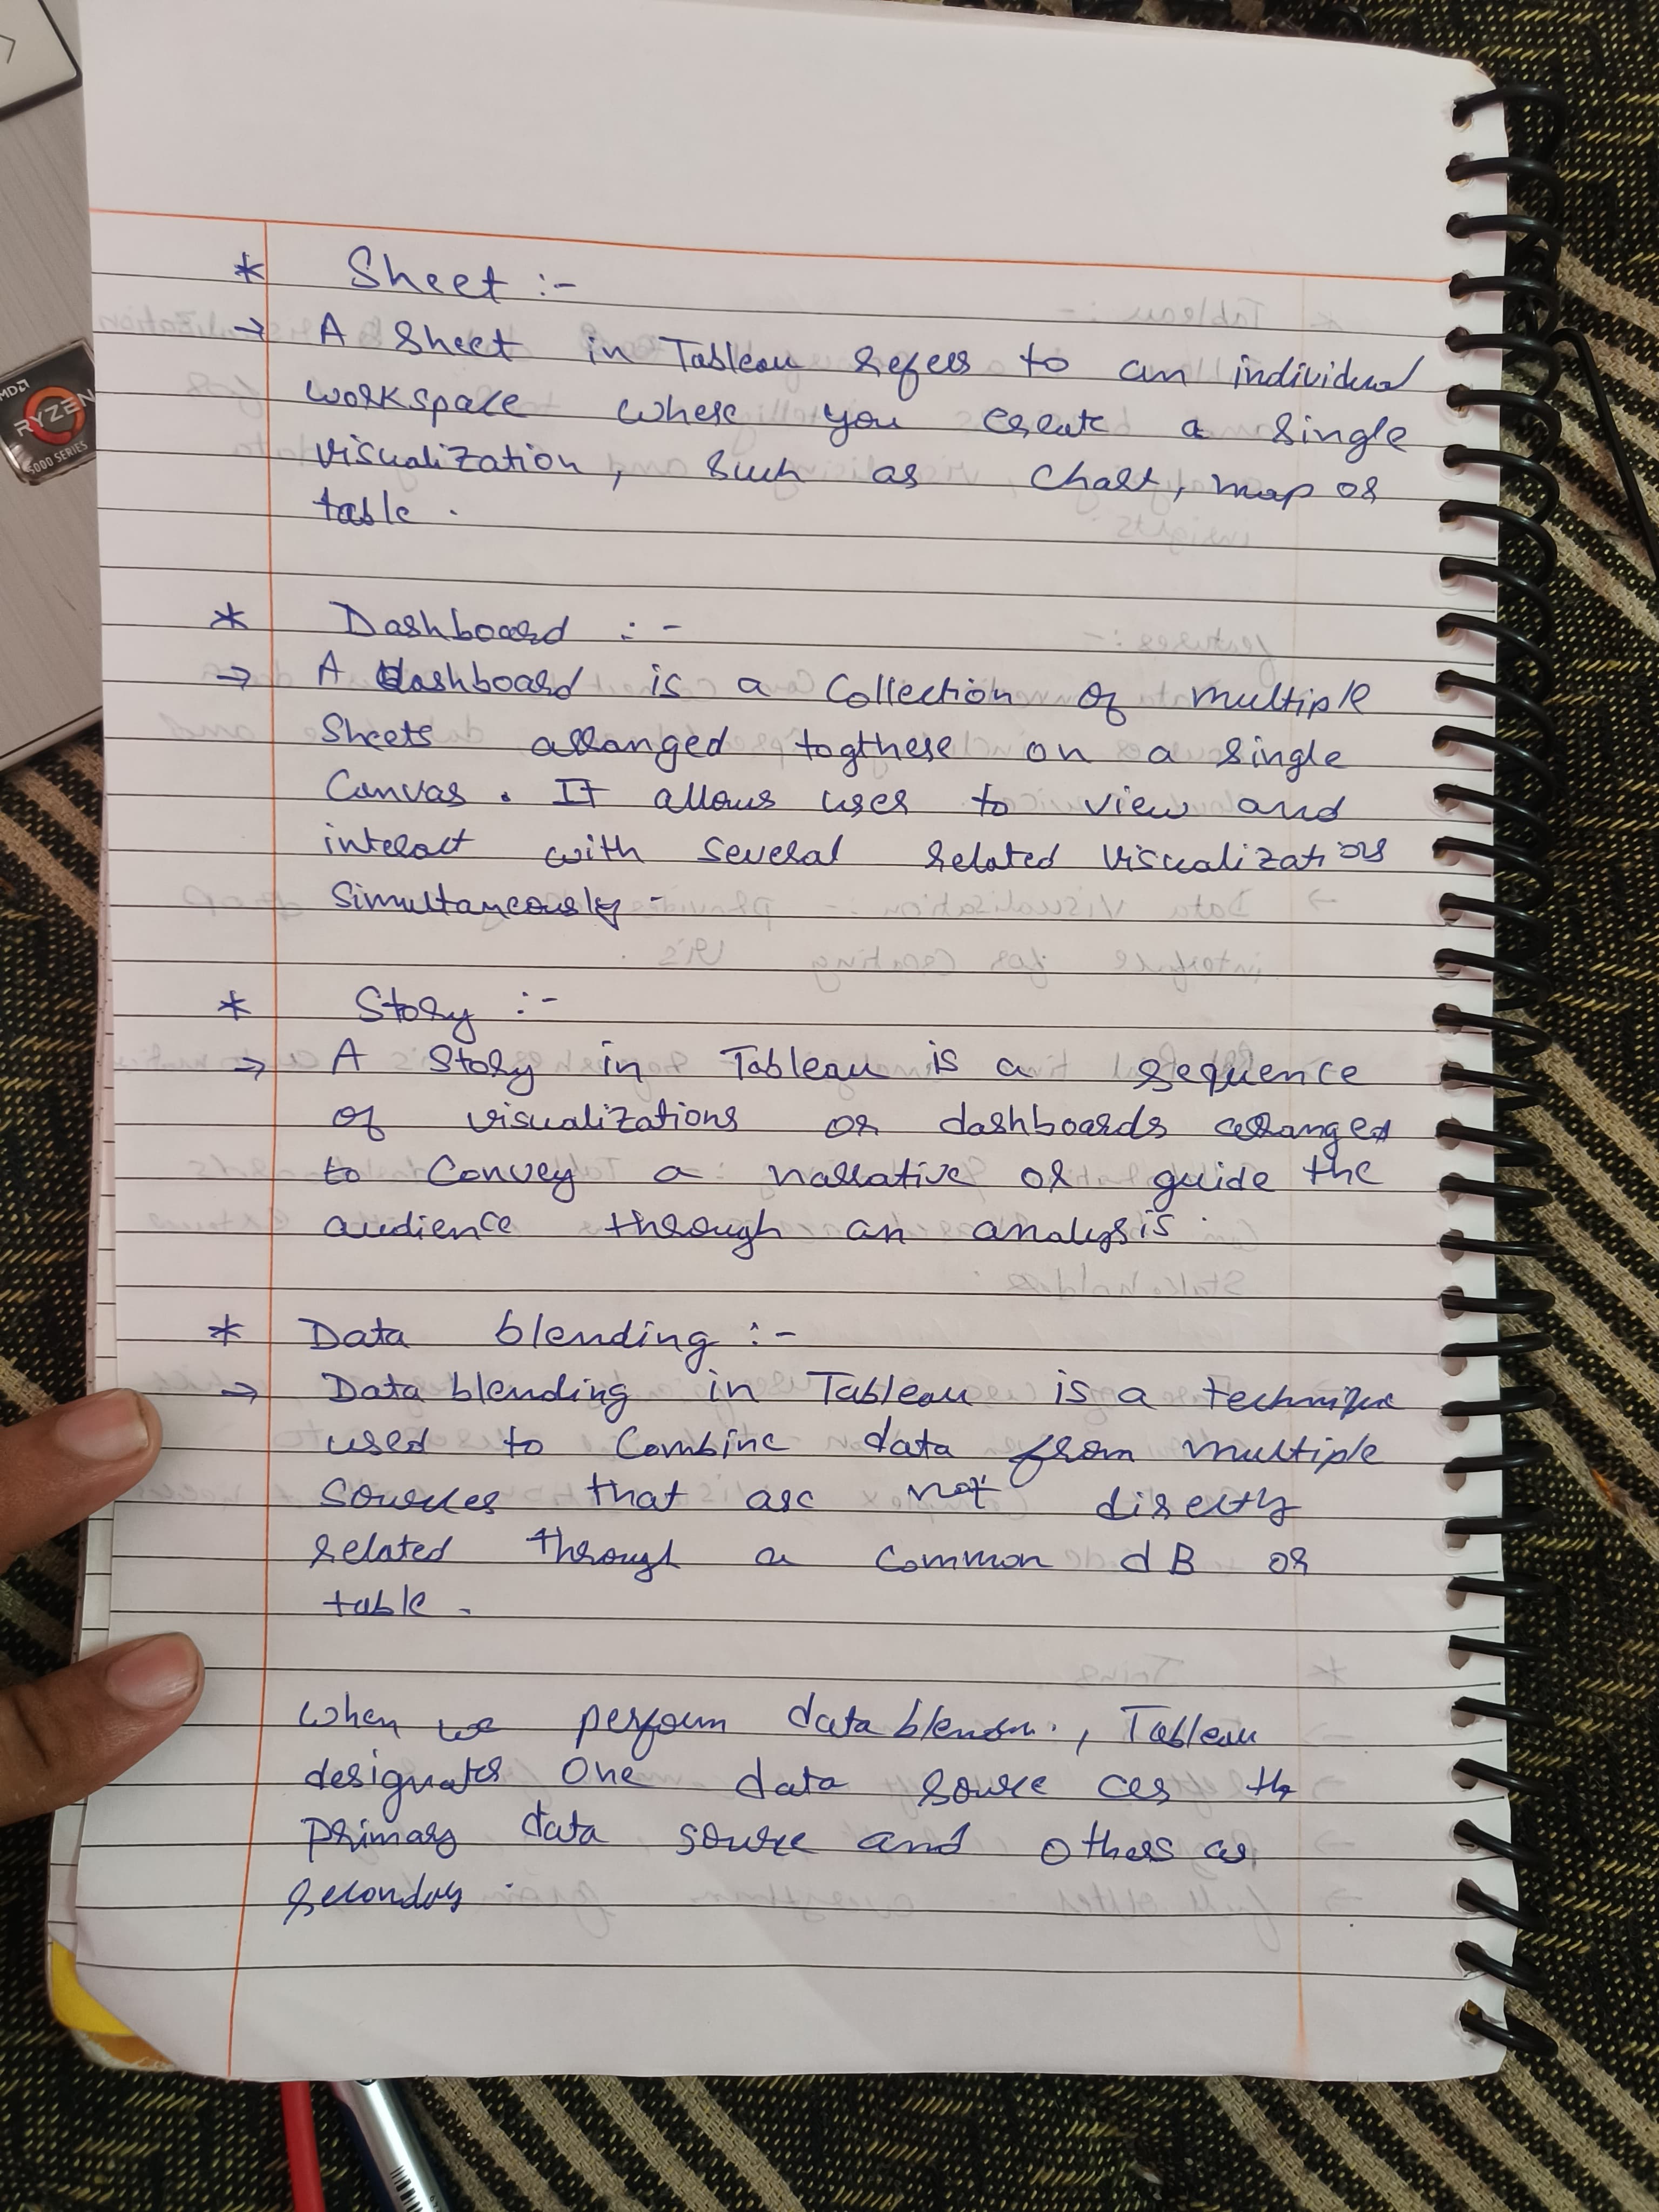 AMD
RYZEN
5000 SERIES
* Sheet :-
→ A Sheet in Tableau refers to an individual
workspace where you create a single
visualization, such as chart, map or
table .
* Dashboard :-
→ A dashboard is a Collection of multiple
Sheets arranged togthere on a single
Canvas . It allows user to view and
interact with several related visualizations
Simultaneously -
* Story :-
→ A Story in Tableau is a sequence
of visualizations or dashboards arranged
to Convey a narrative or guide the
audience through an analysis .
* Data blending :-
→ Data blending in Tableau is a technique
used to Combine data from multiple
Sources that are not directly
related through a common dB or
table .
When we perform data , Tableau
designates one data source as the
primary data source and others as
secondary .